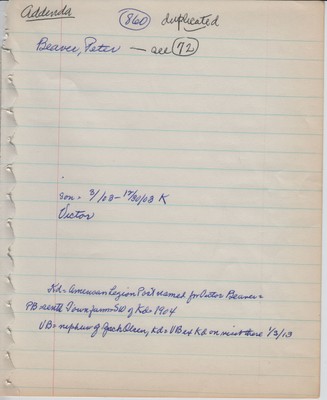 Addenda
860 duplicated
Beaver, Peter — see 72
son = 3/1/03 - 12/30/03 K
Victor
Kd = American Legion Post named for Victor Beaver =
PB Iowa farm SW of Kd = 1904
VB = nephew of Jack Olsen, Kd = VB at Kd on visit there 1/3/13